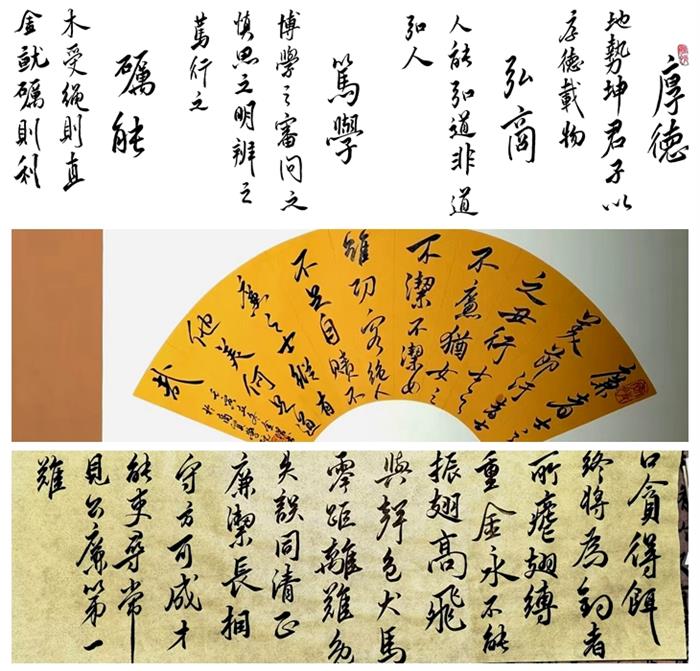 厚德
地勢坤君子以
厚德載物
弘商
人能弘道非道
弘人
篤學
博學之審問之
慎思之明辨之
篤行之
礪能
木受繩則直
金就礪則利
廉者士之
美節汙者士
之丑行士之
不廉猶女之
不潔不潔女
雖功容絕人
不足自贖不
廉之士縱有
他美何足道
哉
口貪得餌
終將為釣者
所 翅縛
重金永不能
振翅高飛
與聲色犬馬
零距離難免
失誤同清正
廉潔長相
守方可成才
能吏尋常
見公廉第一
難